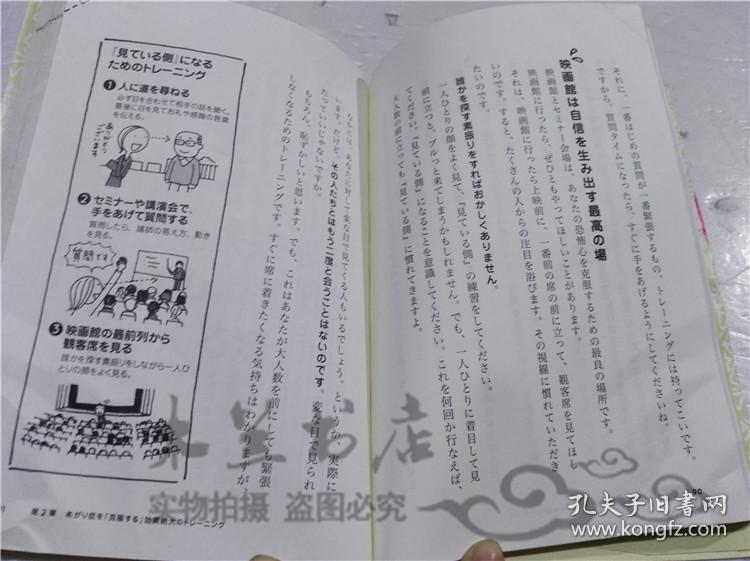 それに、一番はじめの質問が一番緊張するもの。トレーニングには持ってこいです。
ですから、質問タイムになったら、すぐに手をあげるようにしてくださいね。
映画館は自信を生み出す最高の場
映画館とセミナー会場は、あなたの恐怖心を克服するための最良の場所です。
映画館に行ったら、ぜひともやってほしいことがあります。
それは、映画館に行ったら上映前に、一番前の席の前に立って、観客席を見てほし
いのです。すると、たくさんの人からの注目を浴びます。その視線に慣れていただき
たいのです。
誰かを探す素振りをすればおかしくありません。
一人ひとりの顔をよく見て、『見ている側』の練習をしてください。
前に立つと、ブルっと来てしまうかもしれません。でも、一人ひとりに着目して見
てください。『見ている側』になることを意識してください。これを何回か行なえば、
大人数の前に立っても『見ている側』に慣れてきますよ。
90
『見ている側』になる
ためのトレーニング
1 人に道を尋ねる
必ず目を合わせて相手の話を聞く。
最後に目を見てお礼や感謝の言葉
を伝える。
ありがとう
ございます
2 セミナーや講演会で、
手をあげて質問する
質問したら、講師の答え方、動き
を見る。
質問です
3 映画館の最前列から
観客席を見る
誰かを探す素振りをしながら一人ひ
とりの顔をよく見る。
なかには、あなたに対して変な目で見てくる人もいるでしょう。というか、実際に
います。だけど、その人たちとはもう二度と会うことはないのです。変な目で見られ
たっていいじゃないですか。
もちろん、恥ずかしいと思います。でも、これはあなたが大人数を前にしても緊張
しなくなるためのトレーニングです。すぐに席に着きたくなる気持ちはわかりますが、
第2章 あがり症を「克服する」効果絶大のトレーニング
书店
实物拍摄 盗图必究
孔夫子旧书网
www.kongfz.com